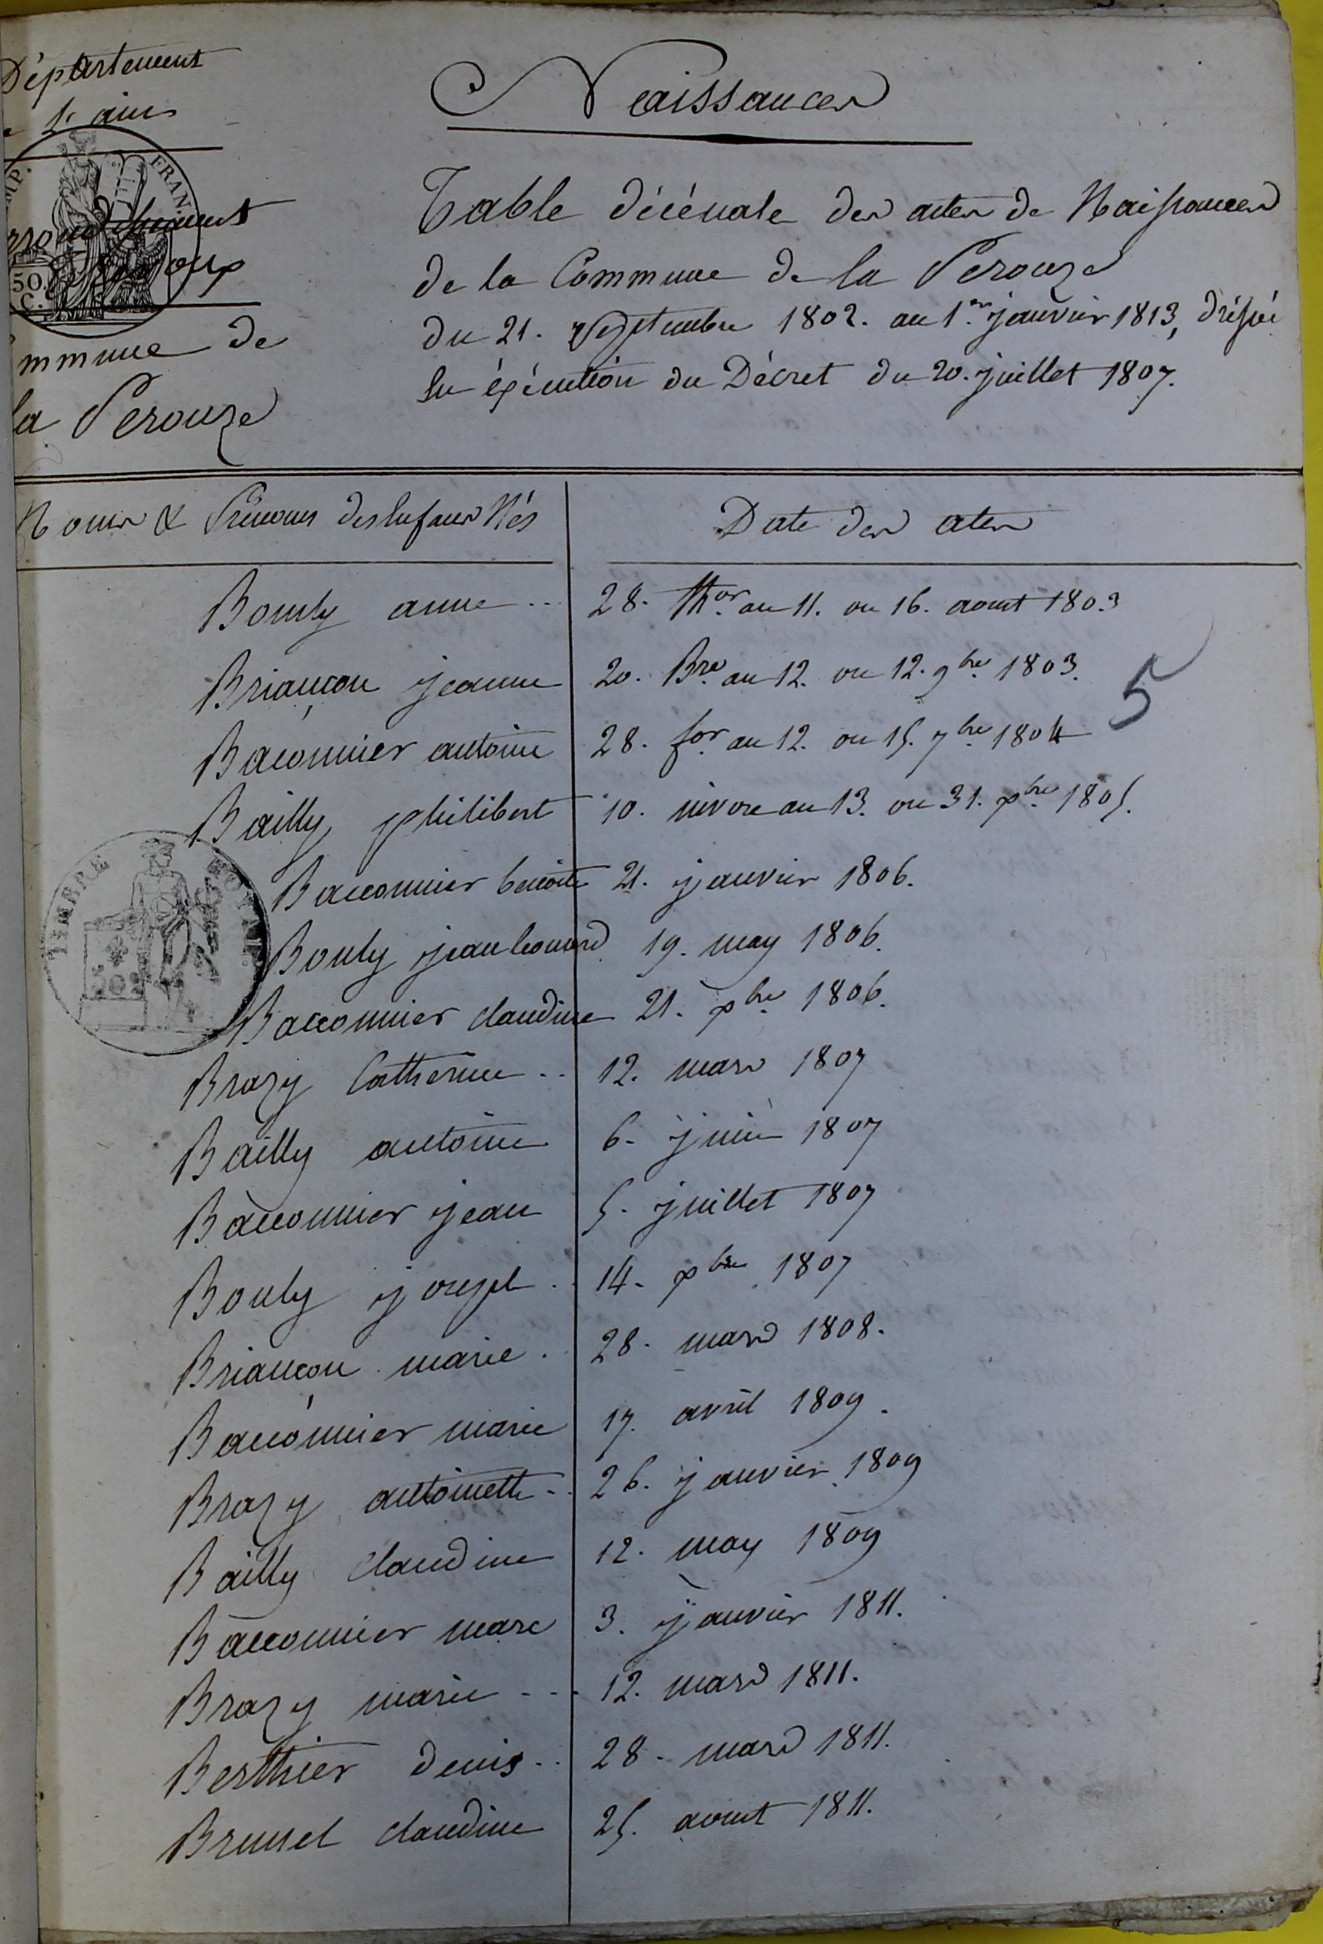 Département
de l'ain
arrondissement
de trevoux
Commune de
la Perouze
Naissances
Table décénale des actes de Naissances
de la Commune de la Perouze
du 21. Septembre 1802. au 1.er janvier 1813, dréssée
En éxécution du Décret du 20. juillet 1807.
Noms & Prénoms des Enfans Nés
Date des actes
Bouly anne .. 28. th.or an 11. ou 16. aout 1803
Briançon jeanne 20. B.re an 12. ou 12. 9.bre 1803.
5
Baconnier antoine 28. f.or an 12. ou 15. 7.bre 1804
Bailly philibert 10. nivose an 13. ou 31. x.bre 1805.
TIMBRE ROYAL
Bacconnier benoite 21. janvier 1806.
Bouly jean leonard 19. may 1806.
Bacconnier claudine 21. x.bre 1806.
Brazy Catherine .. 12. mars 1807
Bailly antoine 6. juin 1807
Bacconnier jean 5. juillet 1807
Bouly joseph . 14. x.bre 1807
Briancon marie . 28. mars 1808.
Bacconnier marie 17. avril 1809.
Brazy antoinette .. 26. janvier 1809
Bailly Claudine 12. may 1809
Bacconnier marc 3. janvier 1811.
Brazy marie ... 12. mars 1811.
Berthier denis .. 28. mars 1811.
Brunel claudine 25. aout 1811.